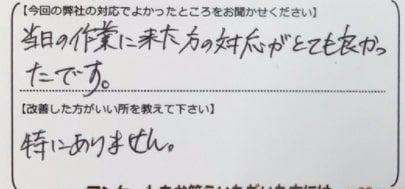 【今回の弊社の対応でよかったところをお聞かせください】
当日の作業に来た方の対応がとても良かっ
たです。
【改善した方がいい所を教えて下さい】
特にありません。